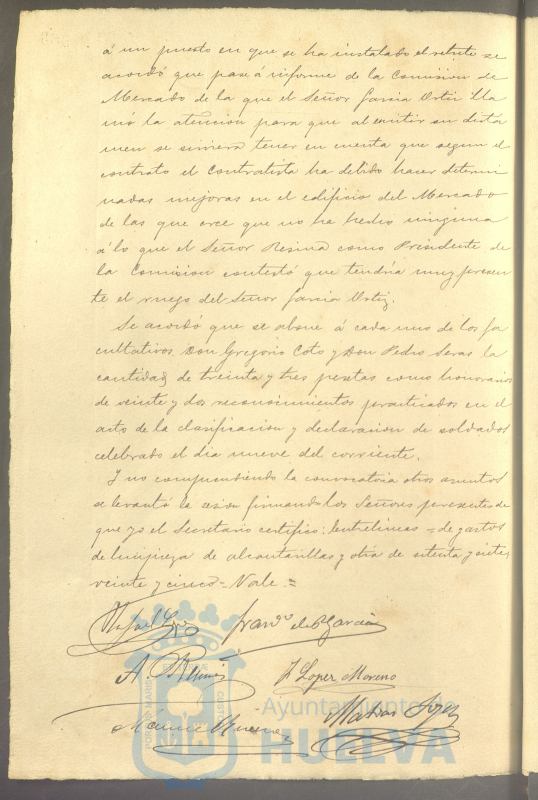 á un puesto en que se ha instalado el retrete se
acordó que pase á informe de la Comision de
Mercado de la que el Señor Garcia Ortiz lla
mó la atencion para que al emitir su dictá
men se sirviera tener en cuenta que segun el
contrato el Contratista ha debido hacer determi
nadas mejoras en el edificio del Mercado
de las que cree que no ha hecho ninguna
á lo que el Señor Resina como Presidente de
la Comision contestó que tendria muy presen
te el ruego del Señor Garcia Ortiz.
Se acordó que se abone á cada uno de los fa
cultativos Don Gregorio Coto y Don Pedro Seras la
cantidad de treinta y tres pesetas como honorarios
de veinte y dos reconocimientos practicados en el
acto de la clasificacion y declaracion de soldados
celebrado el dia nueve del corriente.
Y no comprendiendo la convocatoria otros asuntos
se levantó la sesion firmando los Señores presentes de
que yo el Secretario certifico: Entrelineas = de gastos
de limpieza de alcantarillas y otra de setenta y siete,
veinte y cinco = Vale =
Rafael
Garcia
J Lopez Moreno
PORTUS MARIS
Ayuntamiento de
HUELVA